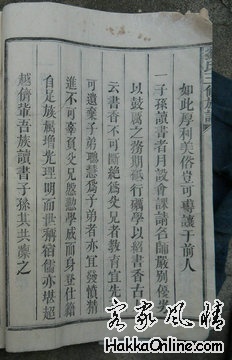 如此厚利美俗豈可專讓于前人
一子孫讀書者月設會課請名師嚴別優劣
以鼓厲之務期砥行礪學以紹書香古人
云書香不可斷絕為父兄者教育宜先
可遺棄子弟聰慧為子弟者亦宜發憤精
進不可辜負父兄懃懃學成而身登仕籍
自足族屬增光理明而世稱宿儒亦堪超
越儕輩吾族讀書子孫其共勗之
客家風情
HakkaOnline.com